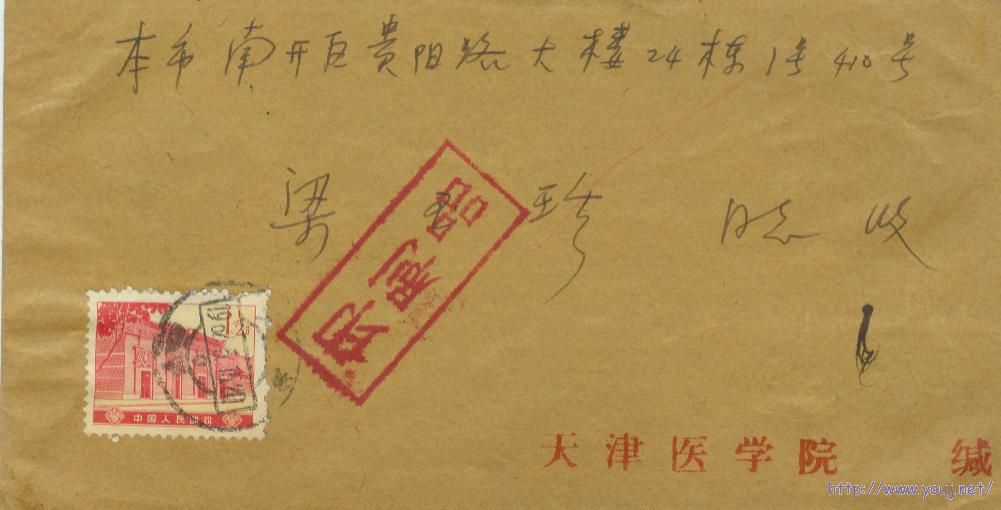 本市南开区贵阳路大楼24栋1号410号
梁玉珍 同志 收
印刷品
中国人民邮政
天津医学院 缄
http://www.youj.net/